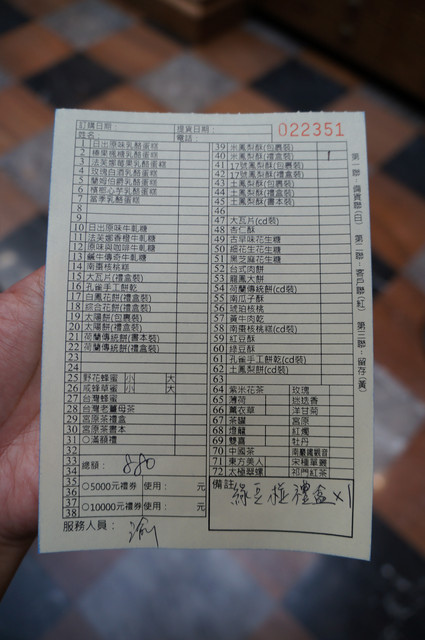 訂購日期：
提貨日期：
022351
姓名：
電話：
1 日出原味乳酪蛋糕
3 法芙娜莓果乳酪蛋糕
4 玫瑰伯酒乳酪蛋糕
5 蘭姆伯爵乳酪蛋糕
7 當季乳酪蛋糕
8
9
10 日出原味牛軋糖
11 法芙娜香橙牛軋糖
12 原味與咖啡牛軋糖
13 鹹牛傳奇牛軋糖
14 南棗核桃糕
15 大瓦片(禮盒裝)
16 孔雀手工餅乾
17 白鳳花餅(禮盒裝)
18 綜合花餅(禮盒裝)
19 太陽餅(包裹裝)
20 太陽餅(禮盒裝)
21 荷蘭傳統餅(書本裝)
22 荷蘭傳統餅(禮盒裝)
23
24
25 野花蜂蜜 小 大
26 咸蜂草蜜 小 大
27 台灣蜂蜜
28 台灣老薑母茶
29 宮原茶禮盒
30 宮原茶書本
31 ○滿額禮
32
33 總額： 880
34
35 ○5000元禮券 使用： 元
36
37 ○10000元禮券 使用： 元
38
服務人員：
39 米鳳梨酥(包裹裝)
40 米鳳梨酥(禮盒裝) 1
41 17號鳳梨酥(包裹裝)
42 17號鳳梨酥(禮盒裝)
43 土鳳梨酥(包裹裝)
44 土鳳梨酥(禮盒裝)
45 土鳳梨酥(書本裝)
46
47 大瓦片(cd裝)
48 杏仁酥
49 古早味花生糖
50 細花生花生糖
51 黑芝麻花生糖
52 台式肉餅
53 龍鳳大餅
54 荷蘭傳統餅(cd裝)
55 南瓜子酥
56 琥珀核桃
57 黃牛肉乾
58 南棗核桃糕(cd裝)
59 紅豆酥
60 綠豆酥
61 孔雀手工餅乾(cd裝)
62 土鳳梨餅(cd裝)
63
64 紫米花茶 玫瑰
65 薄荷 迷迭香
66 薰衣草 洋甘菊
67 茶罐 宮原
68 燈籠 紅燭
69 雙囍 牡丹
70 中國茶 南巖鐵觀音
71 東方美人 宋種單叢
72 太極翠螺 祁門紅茶
備註： 綠豆椪禮盒x1
第一聯：備貨聯(白) 第二聯：客戶聯(紅) 第三聯：留存(黃)